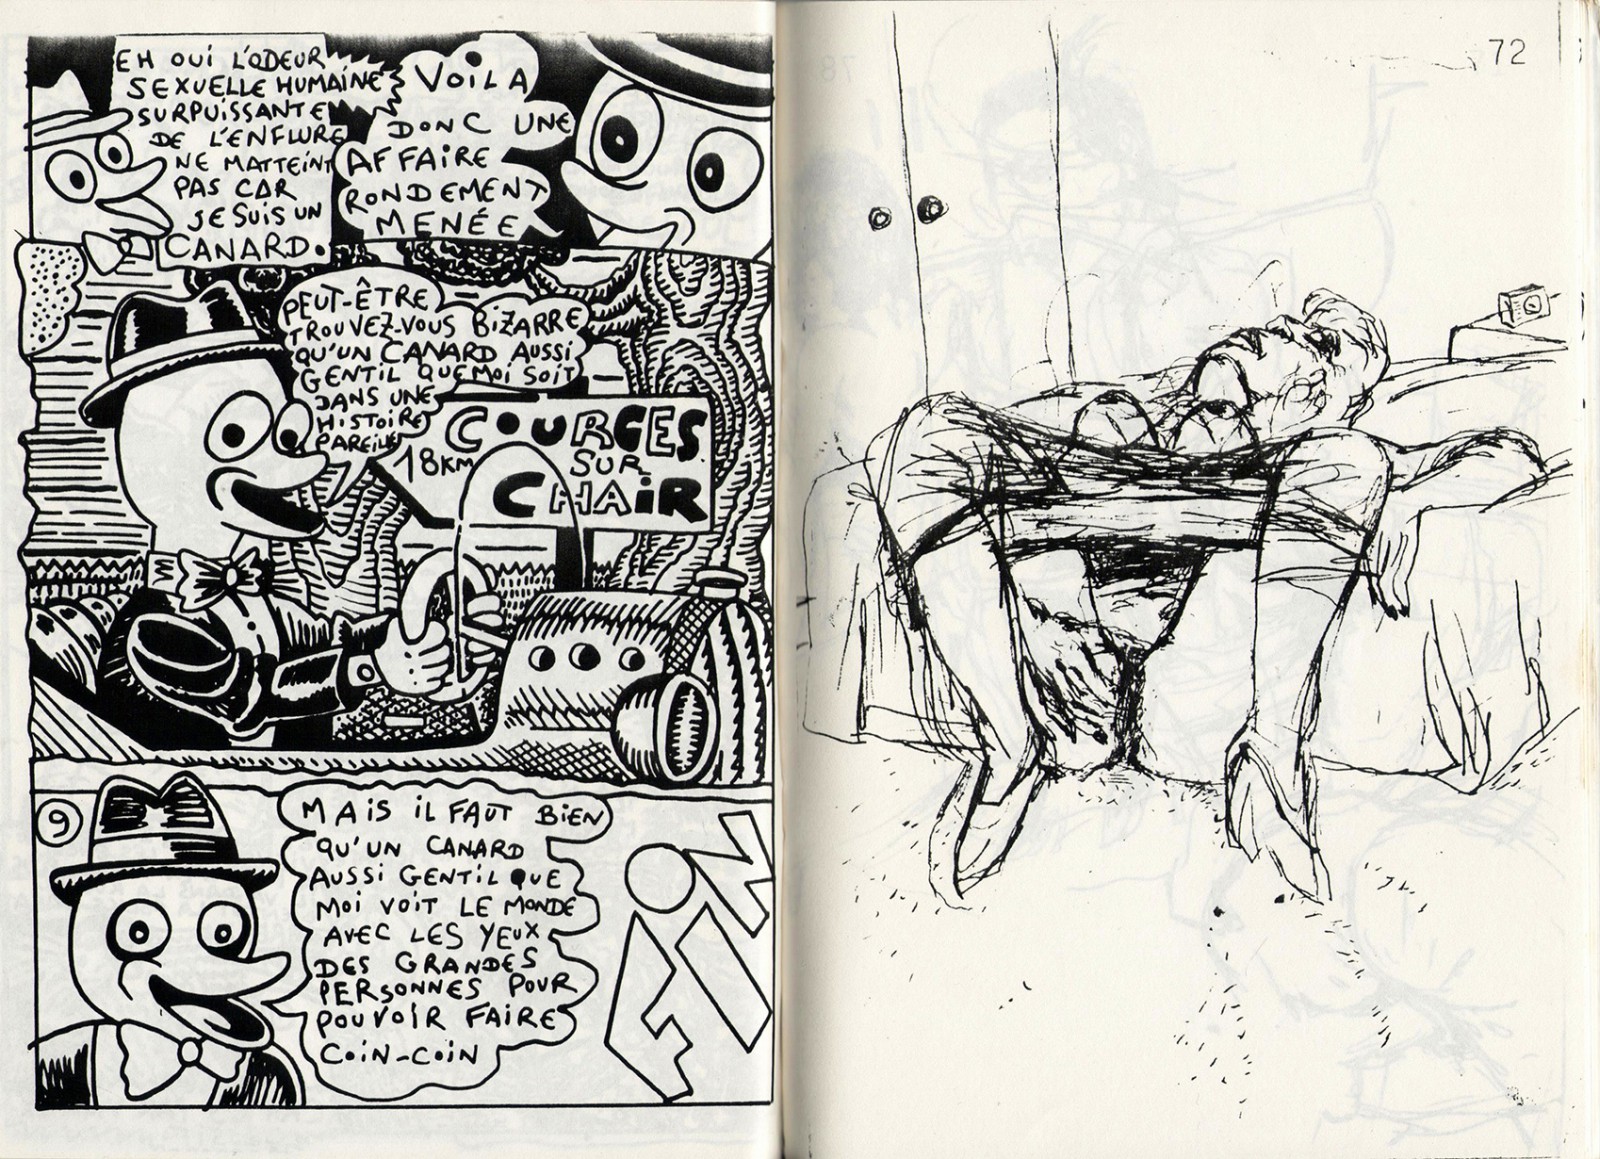 EH OUI L'ODEUR
SEXUELLE HUMAINE
SURPUISSANTE
DE L'ENFLURE
NE MATTEINT
PAS CAR
JE SUIS UN
CANARD.
VOILA
DONC UNE
AFFAIRE
RONDEMENT
MENÉE
PEUT-ÊTRE
TROUVEZ-VOUS BIZARRE
QU'UN CANARD AUSSI
GENTIL QUE MOI SOIT
DANS UNE
HISTOIRE
PAREILLE
COURGES
18KM SUR
CHAIR
9
MAIS IL FAUT BIEN
QU'UN CANARD
AUSSI GENTIL QUE
MOI VOIT LE MONDE
AVEC LES YEUX
DES GRANDES
PERSONNES POUR
POUVOIR FAIRE
COIN-COIN
FIN
72